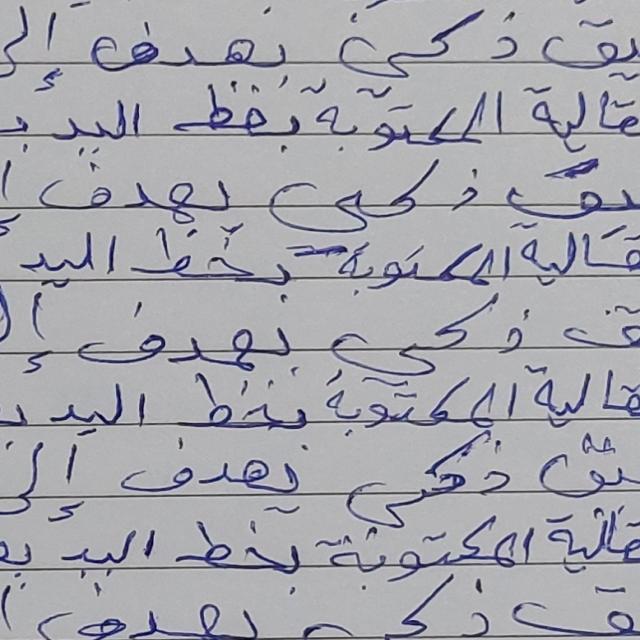 يق ذكي يهدف إلى
قالية المكتوبة بخط اليد ب
يق ذكي يهدف إ
قالية المكتوبة بخط اليد
يق ذكي يهدف إل
قالية المكتوبة بخط اليد ب
يق ذكي يهدف إلى
قالية المكتوبة بخط اليد بص
يق ذكي يهدف إ